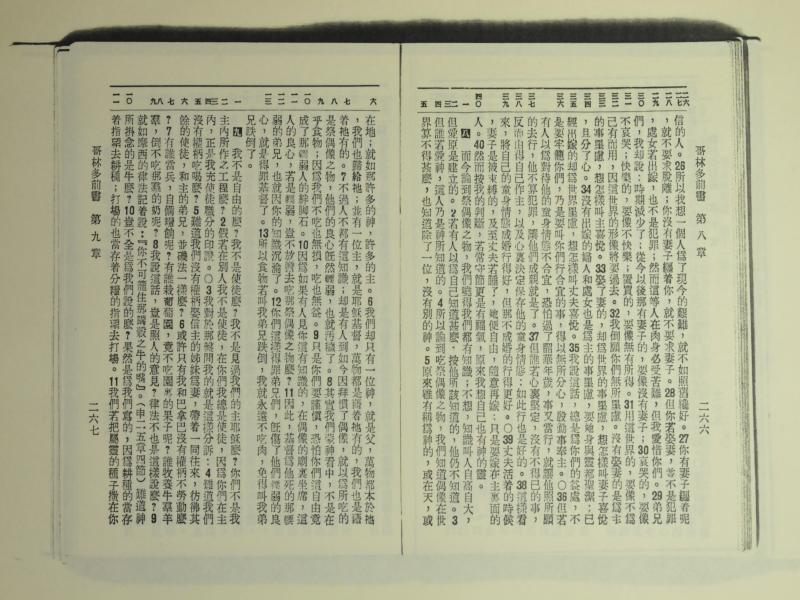 哥林多前書 第八章
二六六
信的人。26所以我想一個人爲了現今的艱難，就不如照舊纔好。27你有妻子纏着呢
，就不要求脫離；你沒有妻子纏着你，就不要求妻子。28但你若娶妻，並不是犯罪
，處女若出嫁，也不是犯罪；然而這等人在肉身必受苦難，但我愛惜你們。29弟兄
們，我却說：時期減少了；從今以後那有妻子的，要像沒有妻子，30哀哭的，要像
不哀哭；快樂的，要像不快樂；置買的，要像無有所得，31用這世界的，要像不爲
己有而用，因這世界的形像將要過去。32我却願你們無所罣慮。沒有娶妻的是爲主
的事罣慮，想怎樣叫主喜悅。33娶了妻的，却爲世界的事罣慮，想怎樣叫妻子喜悅
，且分了心。34沒有出嫁的婦人和處女也是爲主的事罣慮，爲她身與靈都聖潔；已
經出嫁的却爲世界罣慮，想怎樣叫丈夫喜悅。35我說這話，總是爲你們的益處，不
是要牢籠你們，乃是要叫你們行合宜的事，得以無所分心，殷勤事奉主。〇36但若
有人以爲對待他的童身情態不合宜，恐怕過了韶華年歲，事又當行，就要他照所願
的去行，他不算犯罪，讓他們成親就是了。37但誰若心裏堅定，沒有不得已的事，
反而由得自己作主，以及心裏決定保存他的童身情態；如此行也是好的。38這樣看
來，將自己的童身情態成婚行得好，但那不成婚的行得更好。〇39丈夫活着的時候
，妻子是被束縛的，及至丈夫若睡了，她便自由，隨意再嫁；只是要嫁在主裏面的
人。40然而按我的判斷，若常守節更是有福氣，原來我想自己也有神的靈。
八 而今論到祭偶像之物，我們曉得我們都有知識；不想，知識叫人自高自大，
但愛原是建立的。2若有人以爲自己知道甚麼，按他所該知道的，他仍不知道。3
但誰若愛神，這人乃是神所知道的。4所以論到吃祭偶像之物，我們知道偶像在世
界算不得甚麼，也知道除了一位，沒有別的神。5原來雖有稱爲神的，或在天，或
在地；就如那許多的神，許多的主。6我們却只有一位神，就是父，萬物都本於祂
，我們也歸給祂；並有一位主，就是耶穌基督，萬物都是藉着祂有的，我們也是藉
着祂有的。7不過人不都有這知識；却是有人到如今因拜慣了偶像，就以爲所吃的
是祭偶像之物，他們的良心旣然輭弱，也就再穢了。8其實我們蒙神看中，不是在
乎食物；因爲我們不吃也無損，吃也無益。9只是你們要謹慎，恐怕你們這自由竟
成了那輭弱人的絆脚石。10因爲如果有人見你這有知識的，在偶像的廟裏坐席，這
人的良心，若是輭弱，豈不放膽去吃那祭偶像之物麼？11因此，基督爲他死的那輭
弱的弟兄，也就因你的知識沉淪了。12你們這樣得罪弟兄們，旣傷了他們輭弱的良
心，就是得罪基督了。13所以食物若叫我弟兄跌倒，我就永遠不吃肉，免得叫我弟
兄跌倒了。
九 我不是自由的麼？我不是使徒麼？我不是見過我們的主耶穌麼？你們不是我
在主內所作之工程麼？2假若在別人我不是使徒，在你們我總是使徒，因爲你們在主
內，正是我充使徒職分的印證。〇3我對於那盤問我的就是這樣分訴：4難道我們
沒有權柄吃喝麼？5難道我們沒有權柄娶信主的姊妹爲妻，帶着一同往來，彷彿其
餘的使徒，和主的弟兄，並磯法一樣麼？6或許只有我和巴拿巴沒有權柄不勞動麼
？7有誰當兵，自備糧餉呢？有誰栽葡萄園，竟不吃園裏的果子呢？誰牧養牛羣羊
羣，倒不吃那羣的奶呢？8我說這話，豈是照人的意見？律法不也是這樣說麼？9
就如摩西的律法記着說：『你不可籠住那蹍穀之牛的嘴』。（申二五章四節）難道神
所掛念的是牛麼？10豈不全是爲我們說的麼？果然是爲我們寫的，因爲耕種的當存
着指望去耕種；打場的也當存着分糧的指望去打場。11我們若把屬靈的種子撒在你
哥林多前書 第九章
二六七